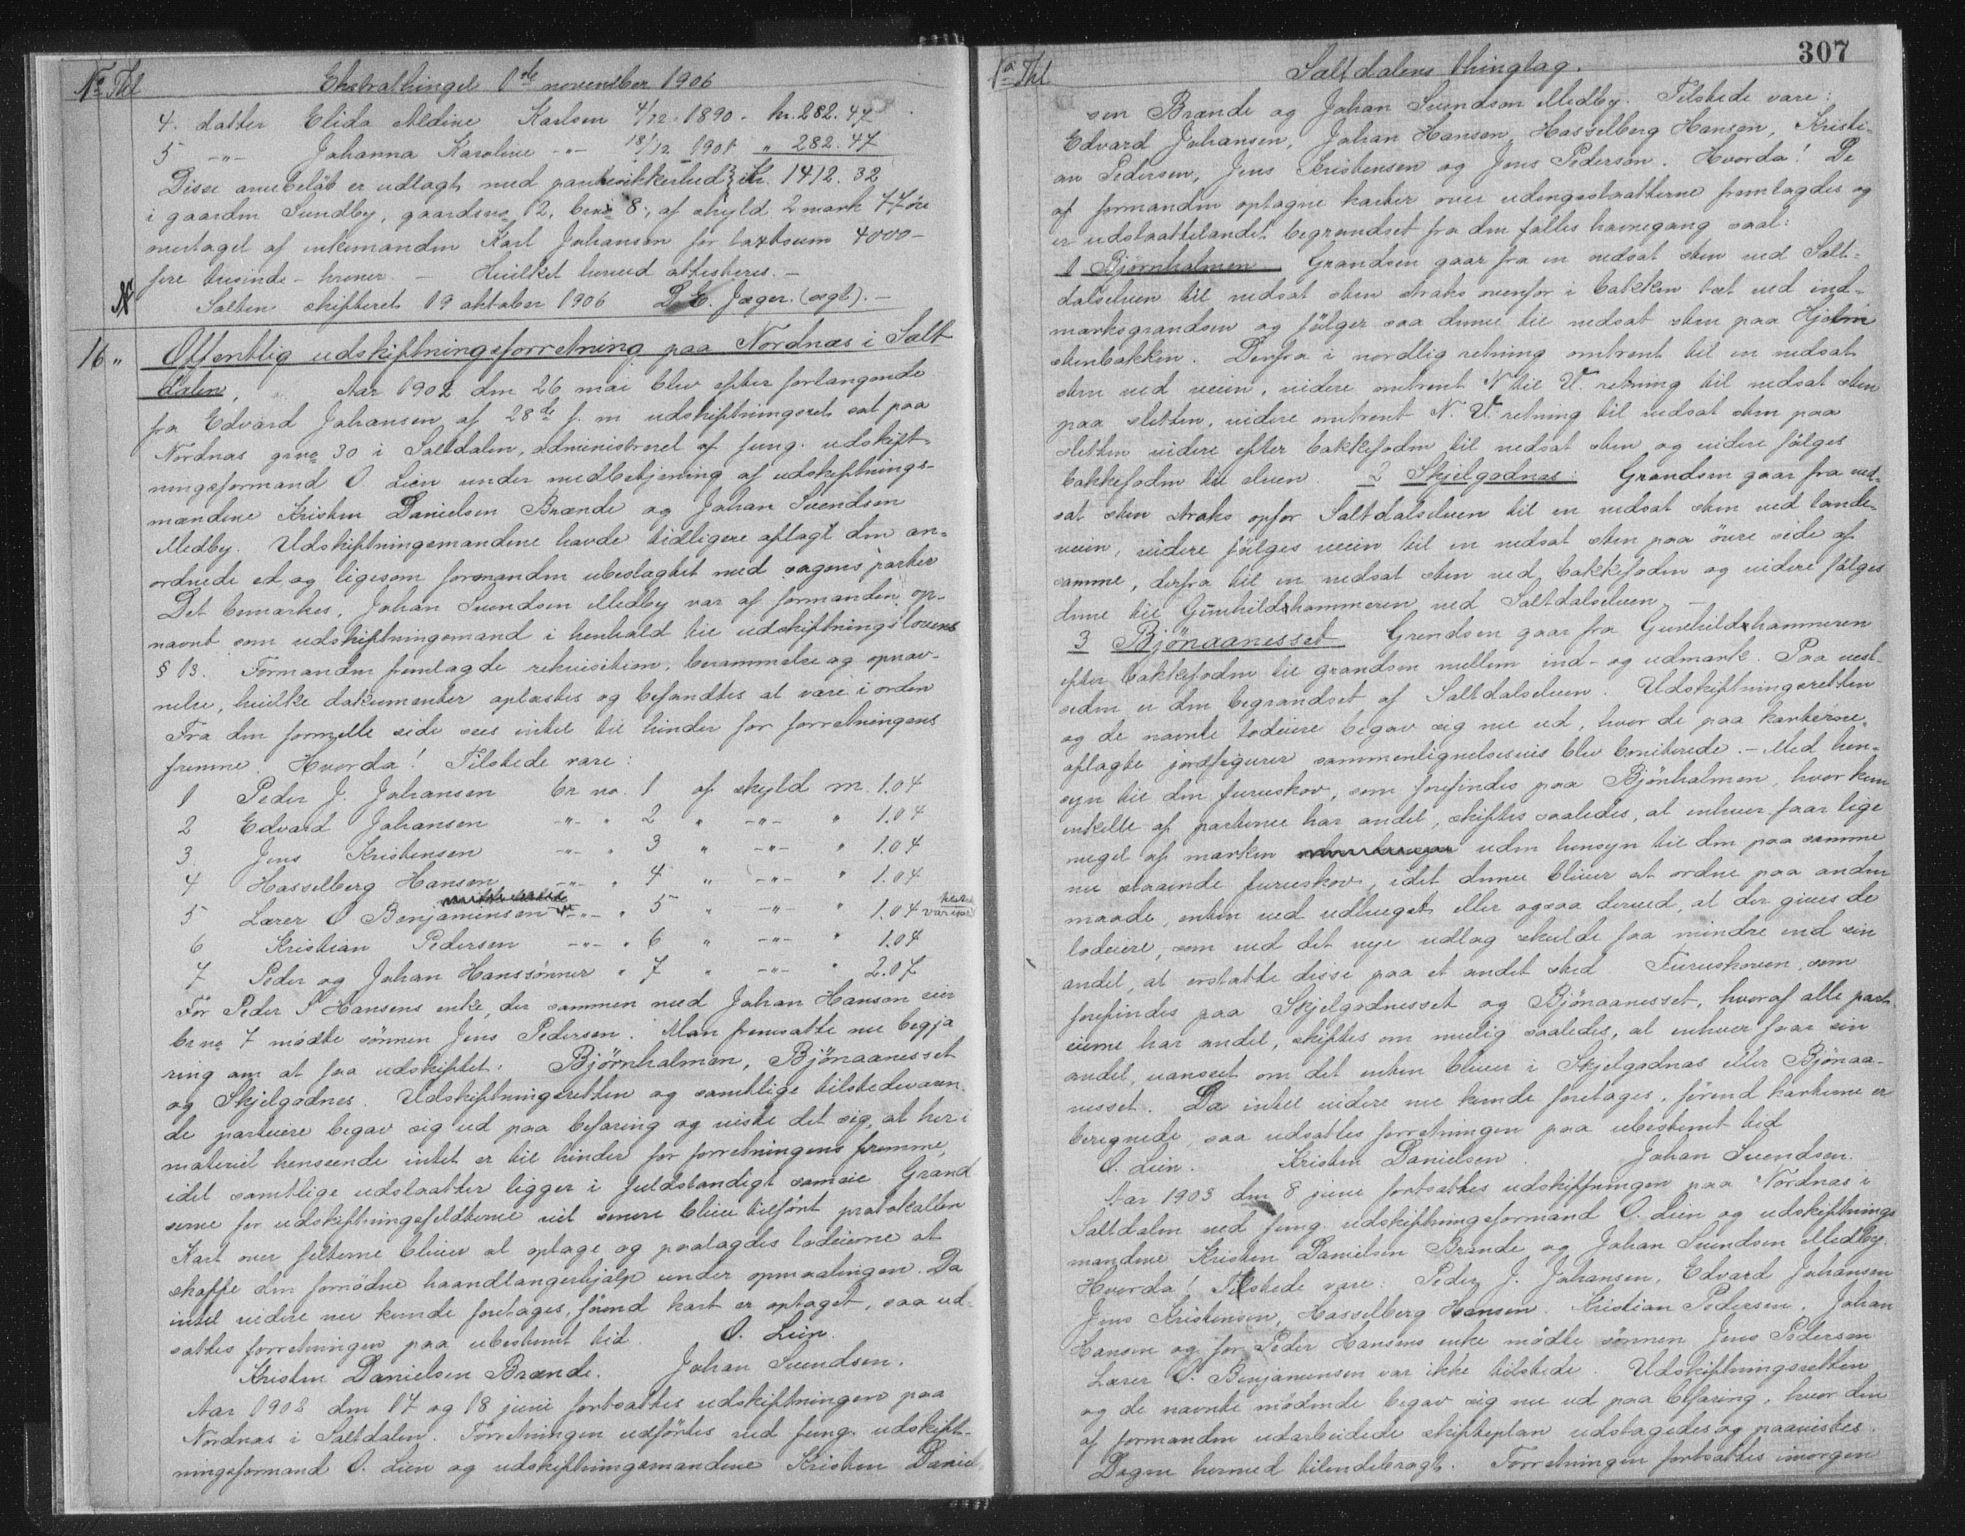 No Thl Ekstrathinget 1ste november 1906
4. datter Elida Aldine Karlsen 4/12 1890 - kr. 282.47
5 -"- Johanna Karoline -"- 18/12 1901 " 282.47
Disse arvebeløb er udlagt med pantesikkerhed Kr. 1412.32
i gaarden Sundby, gaardsno 12, brno 8, af skyld 2 mark 77 øre
modtaget af enkemanden Karl Johansen for taxtsum 4000-
fire tusinde - kroner. - Hvilket herved attesteres. -
Salten skifteret 19 oktober 1906 Jæger. (sagt). -
16 " Offentlig udskiftningsforretning paa Nordnæs i Salt
dalen, Aar 1902 den 26 mai blev efter forlangende
fra Edvard Johansen af 28de f. m. udskiftningsret sat paa
Nordnæs gno 30 i Saltdalen, administreret af fung. udskift-
ningsformand O. Lien under medbetjening af udskiftnings-
mændene Kristen Danielsen Brænde og Johan Svendsen
Medby. Udskiftningsmændene havde tidligere aflagt den an-
ordnede ed og ligesom formanden ubeslægtet med sagens parter
Det bemærkes, Johan Svendsen Medby var af formanden op-
nævnt som udskiftningsmand i henhold til udskiftningslovens
§ 13. Formanden fremlagde rekvisition, berammelse og opnæv-
nelse, hvilke dokumenter oplæstes og befandtes at være i orden
Fra den formelle side sees intet til hinder for forretningens
fremme. Hvorda! Tilstede vare:
1 Peder J. Johansen br no. 1 af skyld m. 1.04
2 Edvard Johansen -"- " 2 " -"- " 1.04
3. Jens Kristensen -"- " 3 " -"- " 1.04
4 Hasselberg Hansen -"- " 4 " -"- " 1.04
5 Lærer O Benjaminsen -"- " 5 " -"- " 1.04
6 Kristian Pedersen -"- " 6 " -"- " 1.04
7 Peder og Johan Hanssønner " 7 " -"- " 2.07
For Peder Hansens enke, der sammen med Johan Hansen eier
br no 7 mødte sønnen Jens Pedersen. Man fremsatte nu begjæ
ring om at faa udskiftet: Bjørnholmen, Bjønaanesset
og Skjelgodnes. Udskiftningsretten og samtlige tilstedeværen-
de parteiere begav sig ud paa befaring og viste det sig, at her i
materiel henseende intet er til hinder for forretningens fremme,
idet samtlige udslaatter ligger i fuldstændigt sameie Grænd
serne for udskiftningsfeldterne vil senere blive tilført protokollen
Kart over felterne bliver at optage og paalagdes lodeierne at
skaffe den fornødne haandlangerhjælp under opmaalingen. Da
intet videre nu kunde foretages, førend kart er optaget, saa ud-
sattes forretningen paa ubestemt tid. O. Lien.
Kristen Danielsen Brænde. Johan Svendsen.
Aar 1902 den 17 og 18 juni fortsattes udskiftningen paa
Nordnæs i Saltdalen. Forretningen udførtes ved fung. udskift-
ningsformand O. Lien og udskiftningsmændene Kristen Daniel-
No Thl Saltdalens thinglag. 307
sen Brænde og Johan Svendsen Medby. Tilstede vare:
Edvard Johansen, Johan Hansen, Hasselberg Hansen, Kristi-
an Pedersen, Jens Kristensen og Jens Pedersen. Hvorda! De
af formanden optagne karter over udengsslaatterne fremlagdes og
er udslaattelandet begrændset fra den fælles havnegang saal:
1 Bjørnholmen Grændsen gaar fra en nedsat sten ved Salt-
dalselven til nedsat sten straks ovenfor i bakken tæt ved ind-
marksgrændsen og følger saa denne til nedsat sten paa Hjelm
stenbakken. Derfra i nordlig retning omtrent til en nedsat
sten ved veien, videre omtrent N til V. retning til nedsat sten
paa sletten, videre omtrent N. V. retning til nedsat sten paa
sletten videre efter bakkefoden til nedsat sten og videre følges
bakkefoden til elven. 2 Skjelgodnæs. Grændsen gaar fra ned-
sat sten straks opfor Saltdalselven til en nedsat sten ved lande-
veien, videre følges veien til en nedsat sten paa øvre side af
samme, derfra til en nedsat sten ved bakkefoden og videre følges
denne til Gunhildhammeren ved Saltdalselven -
3 Bjønaanesset Grendsen gaar fra Gunhildhammeren
efter bakkefoden til grændsen mellem ind- og udmark. Paa vest-
siden er den begrændset af Saltdalselven. Udskiftningsretten
og de nævnte lodeiere begav sig nu ud, hvor de paa karterne
aflagte jordfigurer sammenlignelsesvis blev boniterede. - Med hen-
syn til den furuskov, som forefindes paa Bjønholmen, hvor kun
enkelte af parterne har andel, skiftes saaledes, at enhver faar lige
meget af marken uden hensyn til den paa samme
nu staaende furuskov, idet denne bliver at ordne paa anden
maade, enten ved udhugst eller ogsaa derved, at der gives de
lodeiere, som ved det nye udlæg skulde faa mindre end sin
andel, at erstatte disse paa et andet sted Furuskoven, som
forefindes paa Skjelgodnesset og Bjønaanesset, hvoraf alle part-
eierne har andel, skiftes om mulig saaledes, at enhver faar sin
andel, uanseet om det enten bliver i Skjelgodnæs eller Bjønaa-
nesset. Da intet videre nu kunde foretages, førend karterne er
beregnede, saa udsattes forretningen paa ubestemt tid
O. Lien. Kristen Danielsen. Johan Svendsen.
Aar 1903 den 8 juni fortsattes udskiftningen paa Nordnæs i
Saltdalen ved fung. udskiftningsformand O. Lien og udskiftnings
mændene Kristen Danielsen Brænde og Johan Svendsen Medby.
Hvorda! Tilstede vare: Peder J. Johansen, Edvard Johansen
Jens Kristensen, Hasselberg Hansen. Kristian Pedersen. Johan
Hansen og for Peder Hansens enke mødte sønnen Jens Pedersen
Lærer O. Benjaminsen var ikke tilstede. Udskiftningsretten
og de nævnte mødende begav sig nu ud paa befaring, hvor den
af formanden udarbeidede skifteplan udstagedes og paavistes.
Dagen hermed tilendebragt. Forretningen fortsættes imorgen